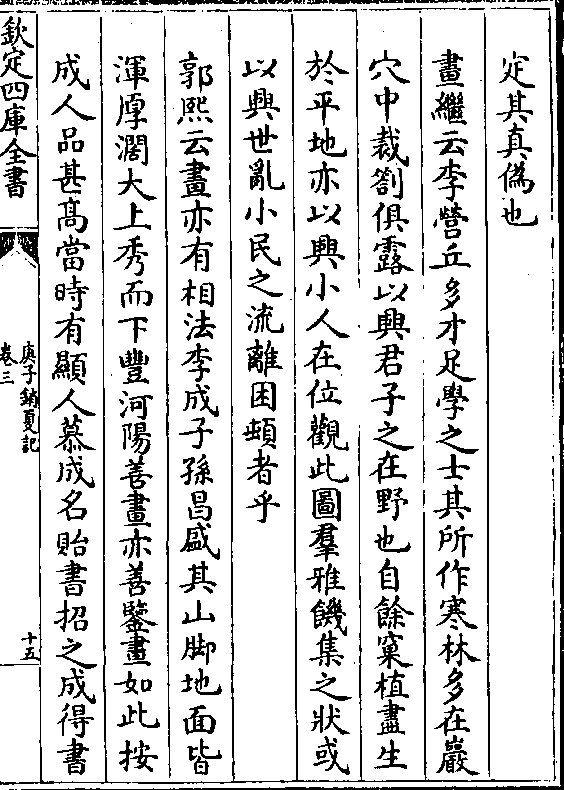 定其真偽也
畫繼云李營丘多才足學之士其所作寒林多在巖
穴中裁劄俱露以興君子之在野也自餘窠植盡生
於平地亦以興小人在位觀此圖羣雅饑集之狀或
以興世亂小民之流離困頓者乎
郭熙云畫亦有相法李成子孫昌盛其山脚地面皆
渾厚濶大上秀而下豐河陽善畫亦善鑒畫如此按
成人品甚髙當時有顯人慕成名貽書招之成得書
欽定四庫全書
庚子銷夏記
卷三
十五